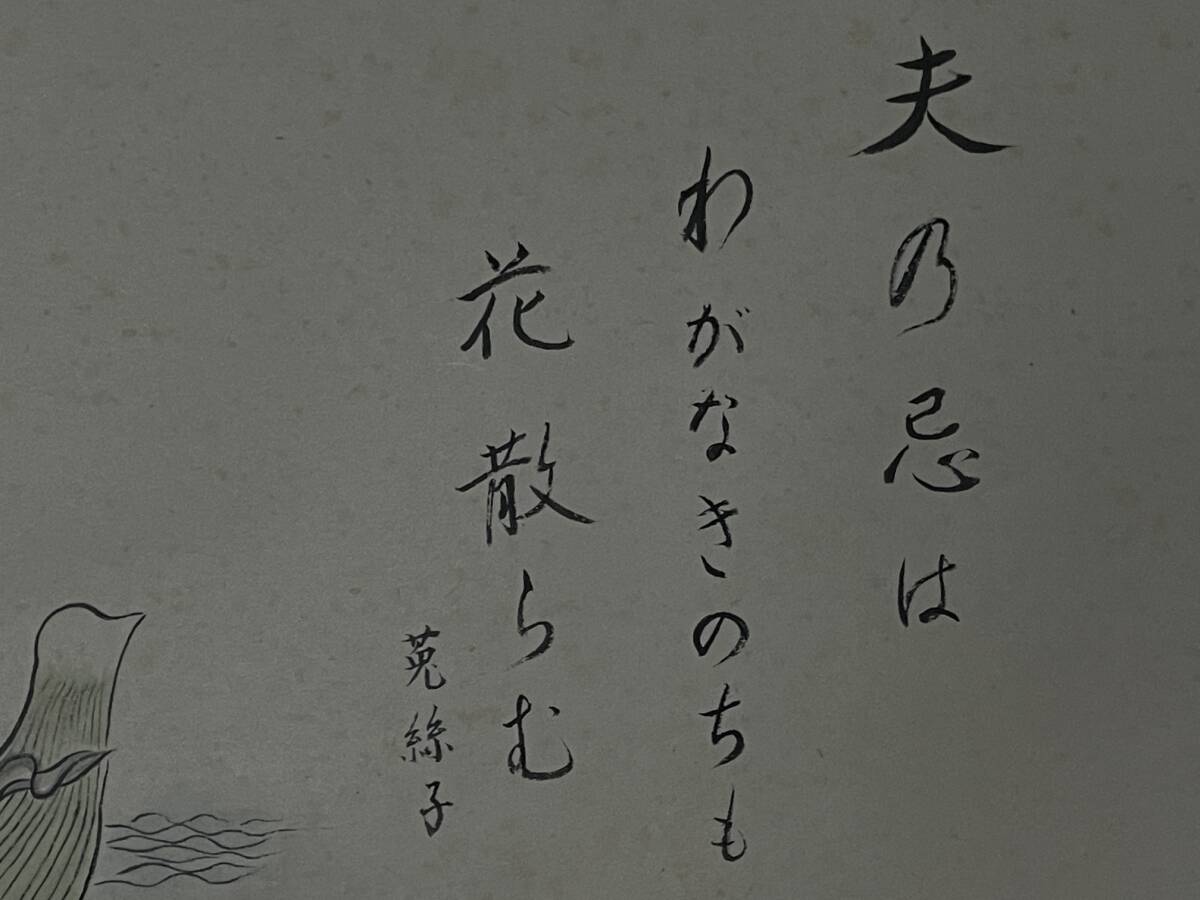 夫乃忌は
わがなきのちも
花散らむ
菟絲子